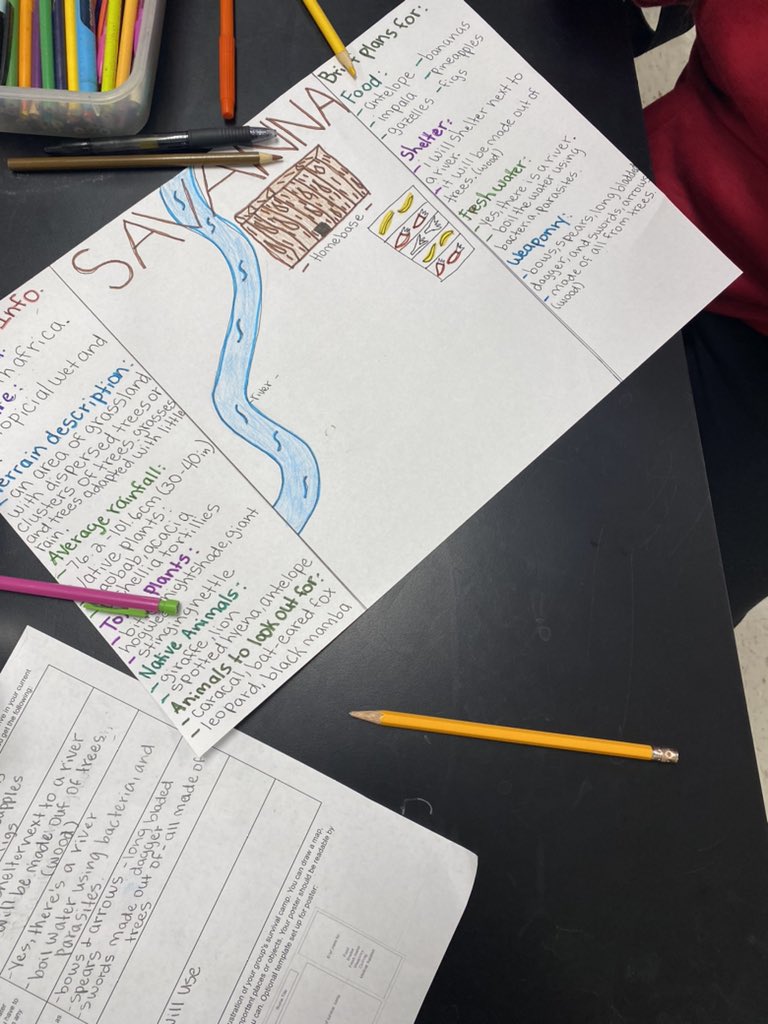 SAVANNA
Info.
h africa.
re:
tropicial wet and
Terrain description:
an area of grassland
with dispersed trees or
clusters of trees. grasses
and trees adapted with little
rain
Average rainfall:
- 76.2 - 101.6cm (30-40in)
native plants:
baobab, acacia
tortillies
plants:
nightshade, giant
hogweed
- stinging nettle
Native Animals:
- giraffe, lion
spotted hyena, antelope
Animals to look out for:
- caracal, bat-eared fox
- leopard, black mamba
- Homebase -
river -
Brief plans for:
Food:
- antelope - bananas
- impala - pineapples
- gazelles - figs
Shelter:
- I will shelter next to
a river.
- it will be made out of
trees. (wood)
Fresh water:
- Yes, there is a river.
- boil the water using
bacteria parasites.
Weaponry:
- bows, spears, long bladed
dagger, and swords, arrows
- made of all from trees.
(wood)
figs
will shelter next to a river
will be made out of trees.
(wood)
- Yes, there's a river
- boil water using bacterial and
parasites.
- bows & arrows - long bladed
spears dagger
swords made out of - all made of
trees
will use
ustration of your group's survival camp. You can draw a map,
mportant places or objects. Your poster should be readable by
u can. Optional template set up for poster: